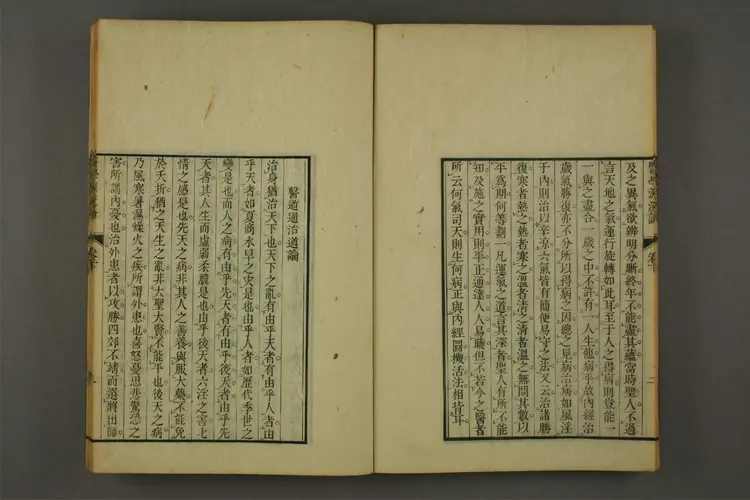 及之異氣欲辨明分晰終年不能盡其蘊當時聖人不過
言天地之氣運行旋轉如此耳至于人之得病則豈能一
一與之盡合一歲之中不許有一人生他病乎故內經治
歲氣勝復亦不分所以得病之因總之見病治病如風淫
于內則治以辛涼六氣皆有簡便易守之法又云治諸勝
復寒者熱之熱者寒之溫者清之清者溫之無問其數以
平爲期何等劃一凡運氣之道言其深者聖人有所不能
知及施之實用則平正通達人人易曉但不若今之醫者
所云何氣司天則生何病正與內經圓機活法相背耳
醫道通治道論
治身猶治天下也天下之亂有由乎天者有由乎人者由
乎天者如夏商水旱之災是也由乎人者如歷代季世之
變是也而人之病有由乎先天者有由乎後天者由乎先
天者其人生而虛弱柔脆是也由乎後天者六淫之害七
情之感是也先天之病非其人之善養與服大藥不能免
於夭折猶之天生之亂非大聖大賢不能平也後天之病
乃風寒暑濕燥火之疾所謂外患也喜怒憂思悲驚恐之
害所謂內憂也治外患者以攻勝四郊不靖而選將出師